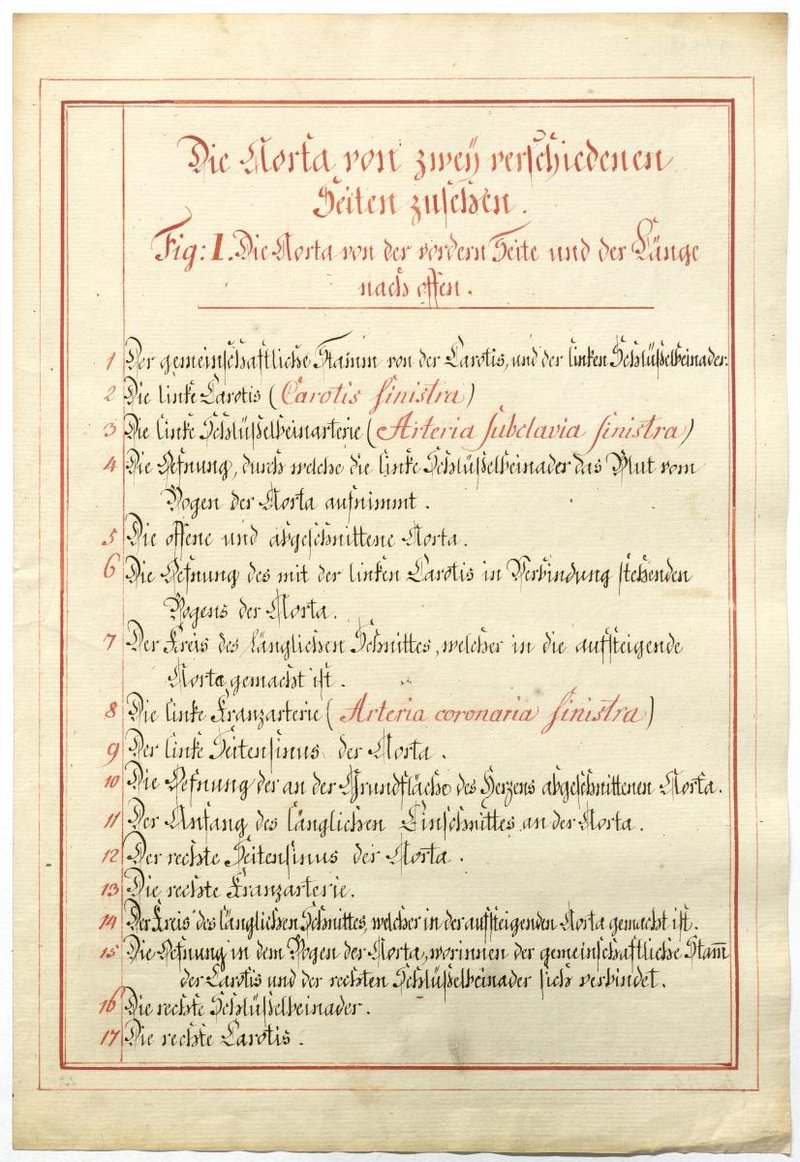 Die Aorta von zweÿ verschiedenen
Seiten zusehen.
Fig: I. Die Aorta von der vordern Seite und der Länge
nach offen.
1 Der gemeinschaftliche Stamm von der Carotis, und der linken Schlüßelbeinader.
2 Die linke Carotis (Carotis sinistra)
3 Die linke Schlüßelbeinarterie (Arteria subclavia sinistra)
4 Die Oefnung, durch welche die linke Schlüßelbeinader das Blut vom
Bogen der Aorta aufnimmt.
5 Die offene und abgeschnittene Aorta.
6 Die Oefnung des mit der linken Carotis in Verbindung stehenden
Bogens der Aorta.
7 Der Kreis des länglichen Schnittes, welcher in die aufsteigende
Aorta gemacht ist.
8 Die linke Kranzarterie (Arteria coronaria sinistra)
9 Der linke Seitensinus der Aorta.
10 Die Oefnung der an der Grundfläche des Herzens abgeschnittenen Aorta.
11 Der Anfang des länglichen Einschnittes an der Aorta.
12 Der rechte Seitensinus der Aorta.
13 Die rechte Kranzarterie.
14 Der Kreis des länglichen Schnittes, welcher in der aufsteigenden Aorta gemacht ist.
15 Die Oefnung in dem Bogen der Aorta, worinnen der gemeinschaftliche Stam̅
der Carotis und der rechten Schlüßelbeinader sich verbindet.
16 Die rechte Schlüßelbeinader.
17 Die rechte Carotis.